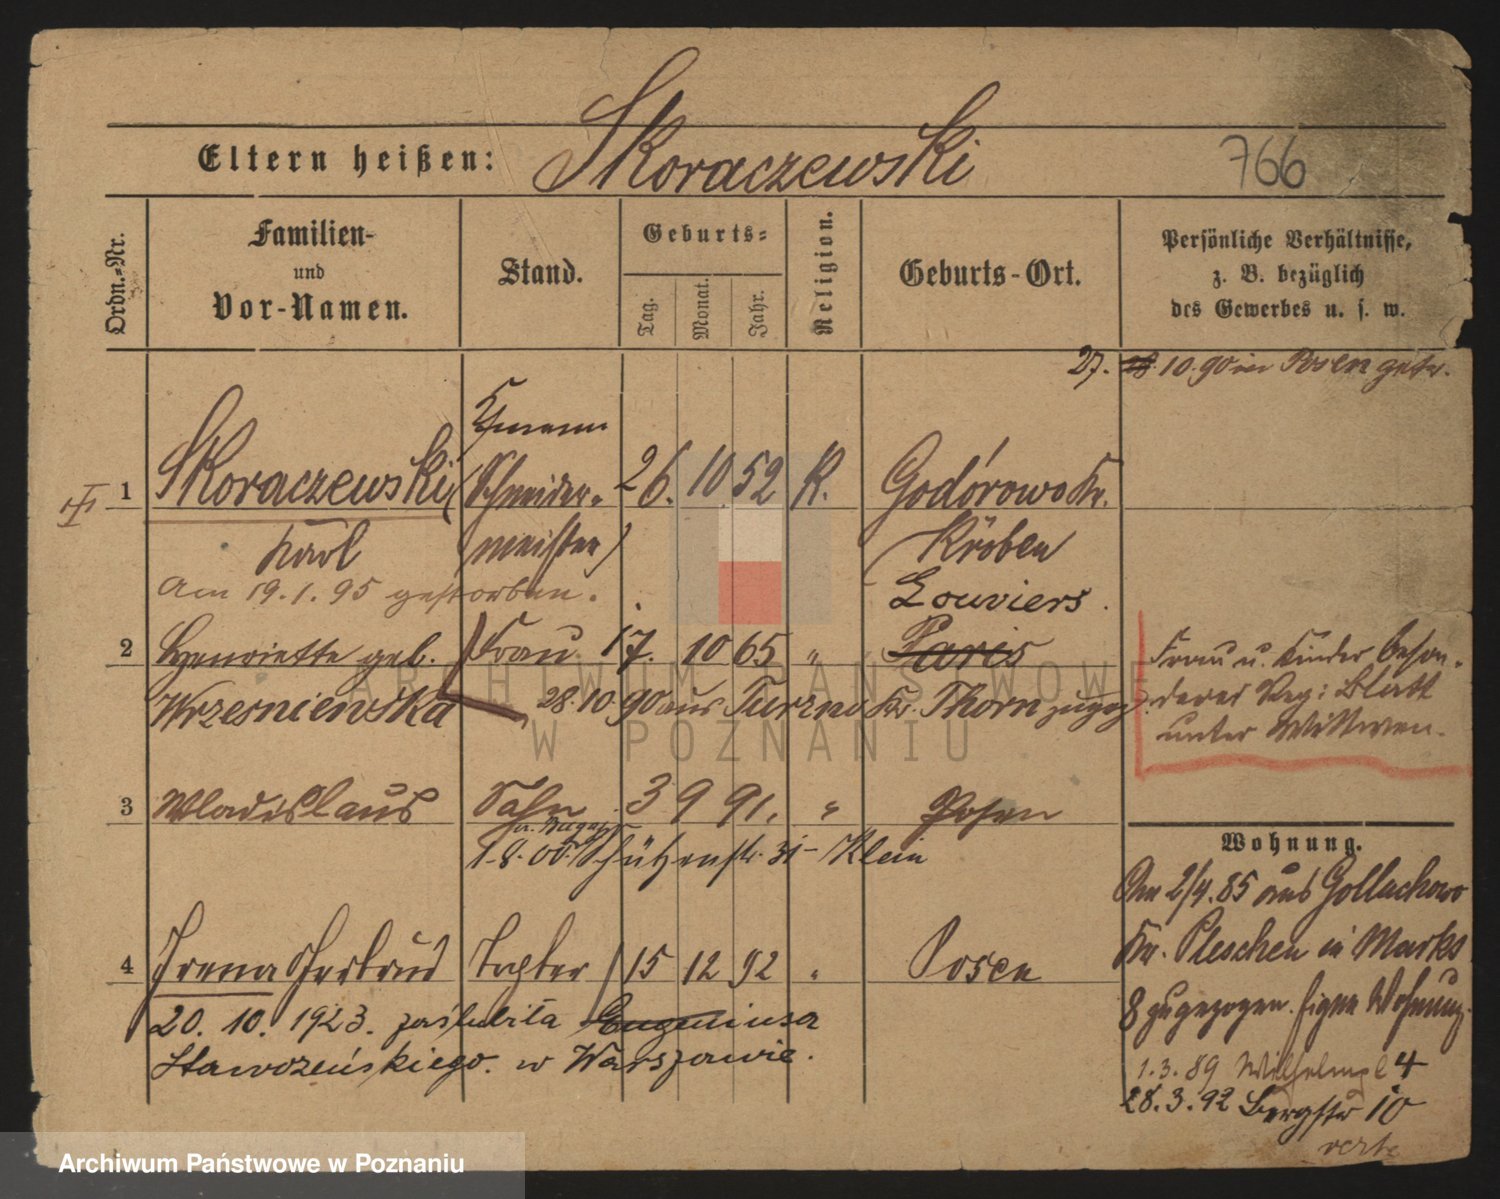 Skoraczewski
Eltern heißen:
766
Ordn.-Nr.
Familien-
und
Vor-Namen.
Stand.
Geburts-
Tag.
Monat.
Jahr.
Religion.
Geburts-Ort.
Persönliche Verhältnisse,
z. B. bezüglich
des Gewerbes u. s. w.
27. 10. 90 in Posen getr.
Ehemann
1 Skoraczewski (Schneider- 26. 10 52 K. Godórowo Kr.
Karl meister) Kröben
Am 19.1.95 gestorben. Louviers.
2 Henriette geb. Frau 17. 10 65 " Paris
Wrzesniewska 28.10.90 aus Turzno Kr. Thorn zugez.
Frau u. Kinder beson-
deres Reg: Blatt
unter Wittwen.
3 Wladislaus Sohn 3 9 91. " Posen
1.8.00. Schützenstr. 31 - Klein
4 Irena Gertrud Tochter 15 12 92 " Posen
20. 10. 1923. zaślubiła Eugeniusza
Stawozeńskiego. w Warszawie.
Wohnung.
Am 2/4. 85 aus Gollachowo
Kr. Pleschen in Markt
8 zugezogen. Eigne Wohnung.
1.3.89 Wilhelmpl 4
28.3.92 Bergstr 10
verte
ARCHIWUM PAŃSTWOWE
W POZNANIU
Archiwum Państwowe w Poznaniu